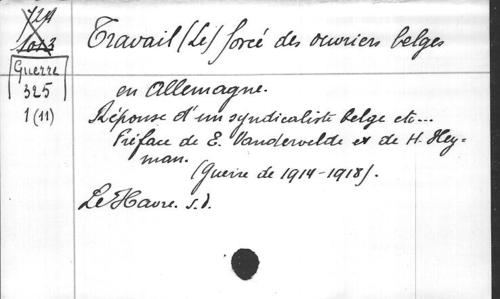 724
1013
Guerre
325
1 (11)
Travail (Le) forcé des ouvriers belges
en Allemagne.
Réponse d'un syndicaliste belge etc...
Préface de E. Vandervelde et de H. Hey-
man.
(Guerre de 1914-1918).
Le Havre. s.d.